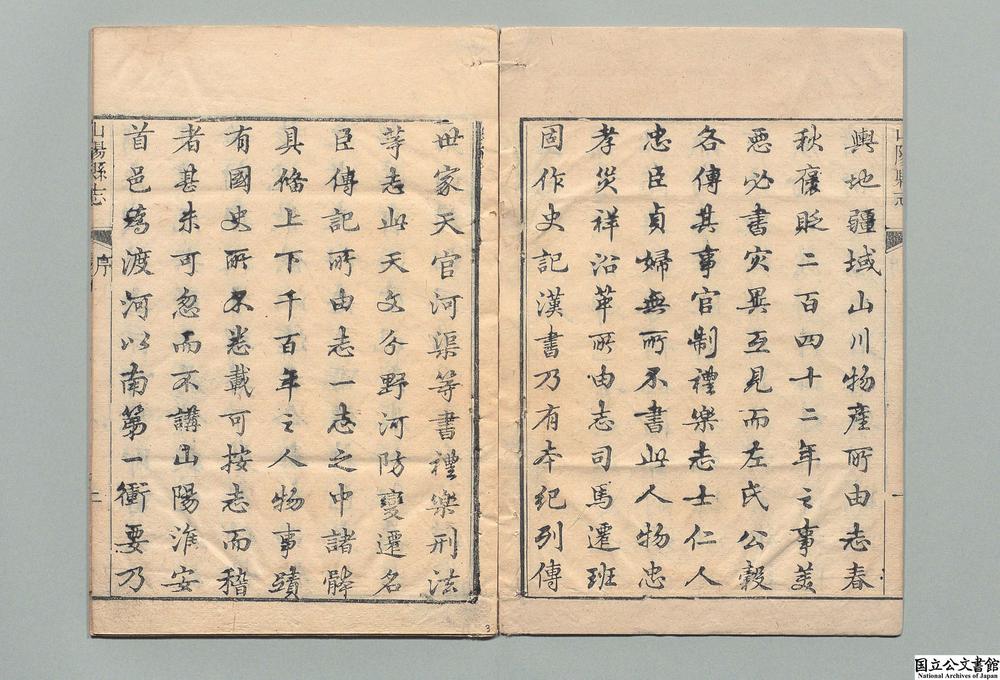 輿地疆域山川物産所由志春
秋襃貶二百四十二年之事美
惡必書灾異互見而左氏公穀
各傳其事官制禮樂志士仁人
忠臣貞婦無所不書此人物忠
孝災祥沿革所由志司馬遷班
固作史記漢書乃有本紀列傳
世家天官河渠等書禮樂刑法
等志此天文分野河防變遷名
臣傳記所由志一志之中諸體
具備上下千百年之人物事蹟
有國史所不悉載可按志而稽
者甚未可忽而不講山陽淮安
首邑為渡河以南第一衝要乃
山陽縣志
序
二
山陽縣志
一
3
国立公文書館
National Archives of Japan